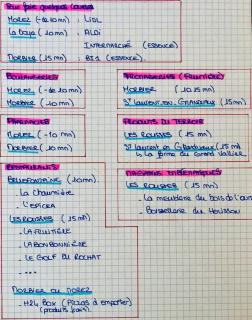 Pour faire quelques courses
MOREZ (- de 10 mn) : LIDL
(10 mn) : ALDI
INTERMARCHÉ (ESSENCE)
MORBIER (15 mn) : BI1 (ESSENCE).
BOULANGERIES
MOREZ (- de 10 mn)
MORBIER (10 mn)
FROMAGERIES (FRUITIÈRE)
MORBIER (10 15 mn)
ST LAURENT EN GRANDVAUX (15 mn)
PHARMACIES
MOREZ (- 10 mn)
MORBIER (10 mn)
PRODUITS DU TERROIR
LES ROUSSES (15 mn)
St Laurent en Grandvaux (15 mn)
↳ La ferme du Grand Vallier
RESTAURANTS
BELLEFONTAINE (10 mn)
- LA CHAUMIÈRE
- L'EPICEA
LES ROUSSES (15 mn)
- LA FRUITIÈRE
- LA BONBONNIÈRE
- LE GOLF DU ROCHAT
- ....
MORBIER OU MOREZ
- H24 BOX (PIZZAS À EMPORTER)
(produits frais)
MAGASINS EMBLÉMATIQUES
LES ROUSSES (15 mn)
- LA
- BOISSELLERIE DU HÉRISSON